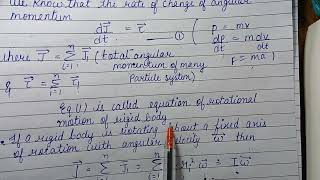 We know that the rate of change of angular
momentum
dJ⃗/dt = τ⃗ ... ① p = mv
dp/dt = m dv/dt
F = ma
where J⃗ = Σⁿᵢ₌₁ J⃗ᵢ (total angular
momentum of many
Particle system)
& τ⃗ = Σⁿᵢ₌₁ τ⃗ᵢ
Eq (1) is called equation of rotational
motion of rigid body
• If a rigid body is rotating about a fixed axis
of rotation with angular velocity ω⃗ then
J⃗ = Σⁿᵢ₌₁ J⃗ᵢ = Σⁿᵢ₌₁ r²ω⃗ = Iω⃗